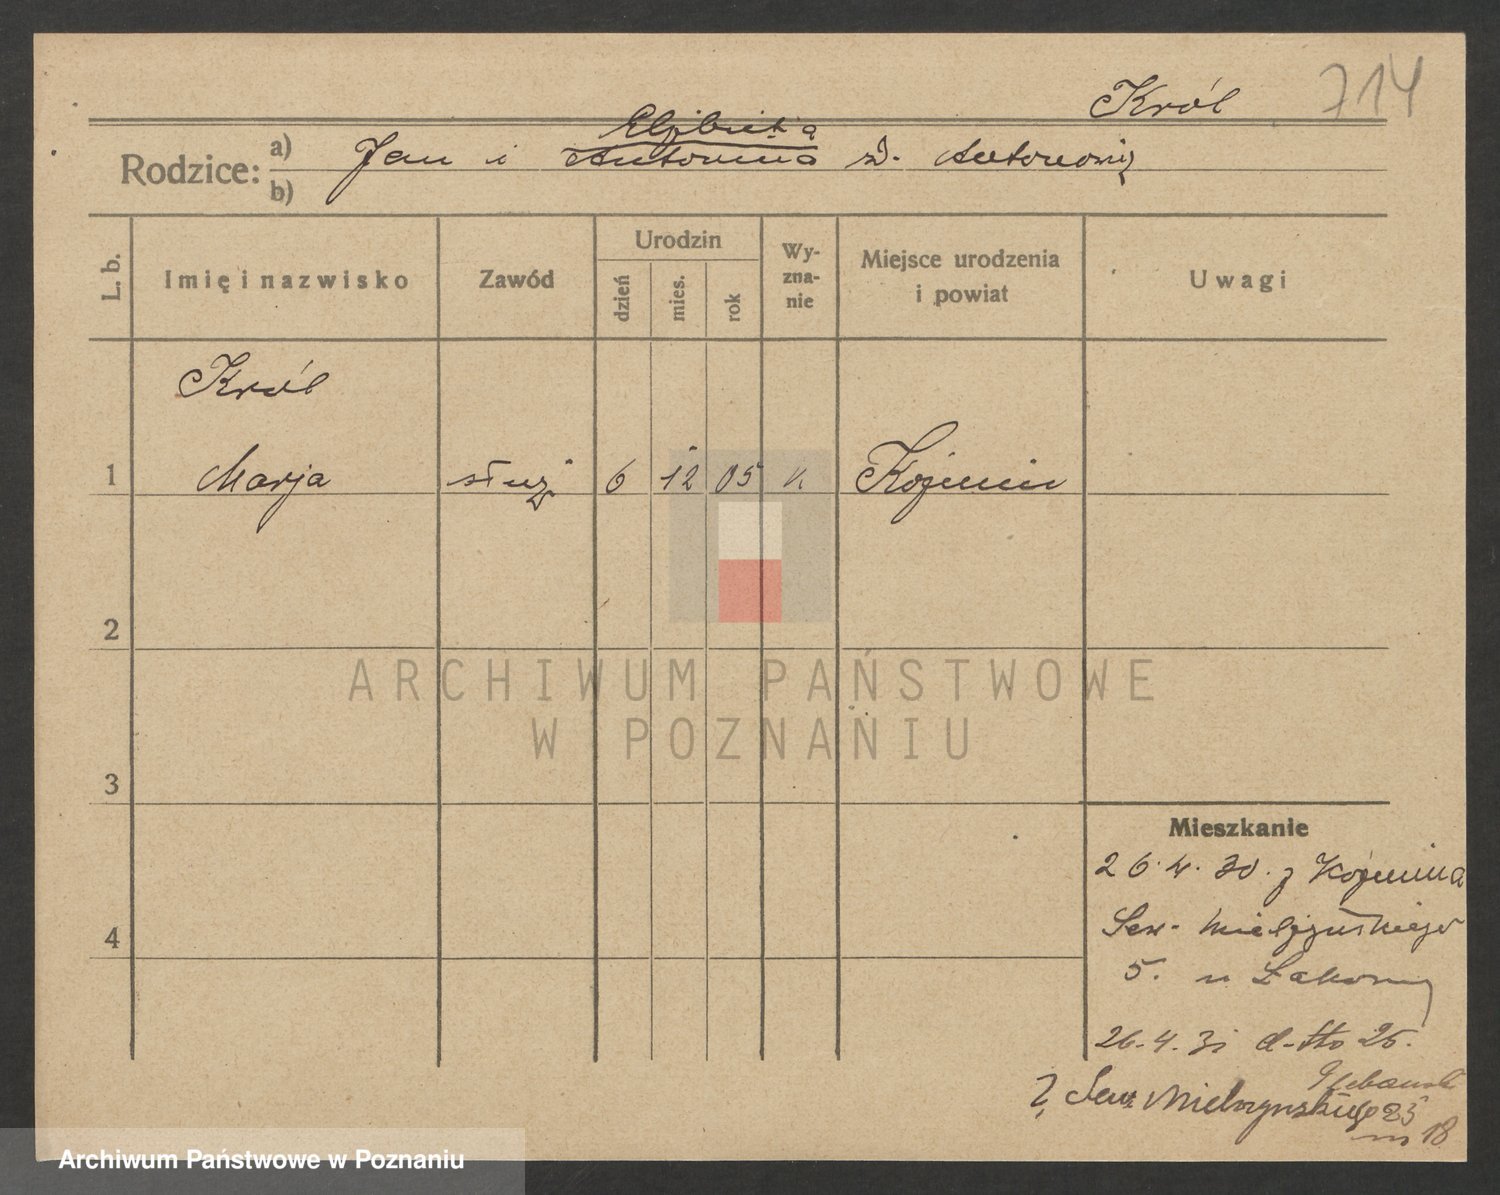 714
Król
Elżbieta
Rodzice: a) Jan i Antonina z d. Antoniewicz
b)
L. b. Imię i nazwisko Zawód Urodzin dzień mies. rok Wy-zna-nie Miejsce urodzenia i powiat Uwagi
Król
1 Marja służ. 6 12 05 k Koźmin
2
ARCHIWUM PAŃSTWOWE
W POZNANIU
3
Mieszkanie
26.4.30. z Koźmina
4
Sew. Mielżyńskiego
5. u
26.4.31 d-tto 25.
Sew. Mielżyńskiego 25
m 18
Archiwum Państwowe w Poznaniu